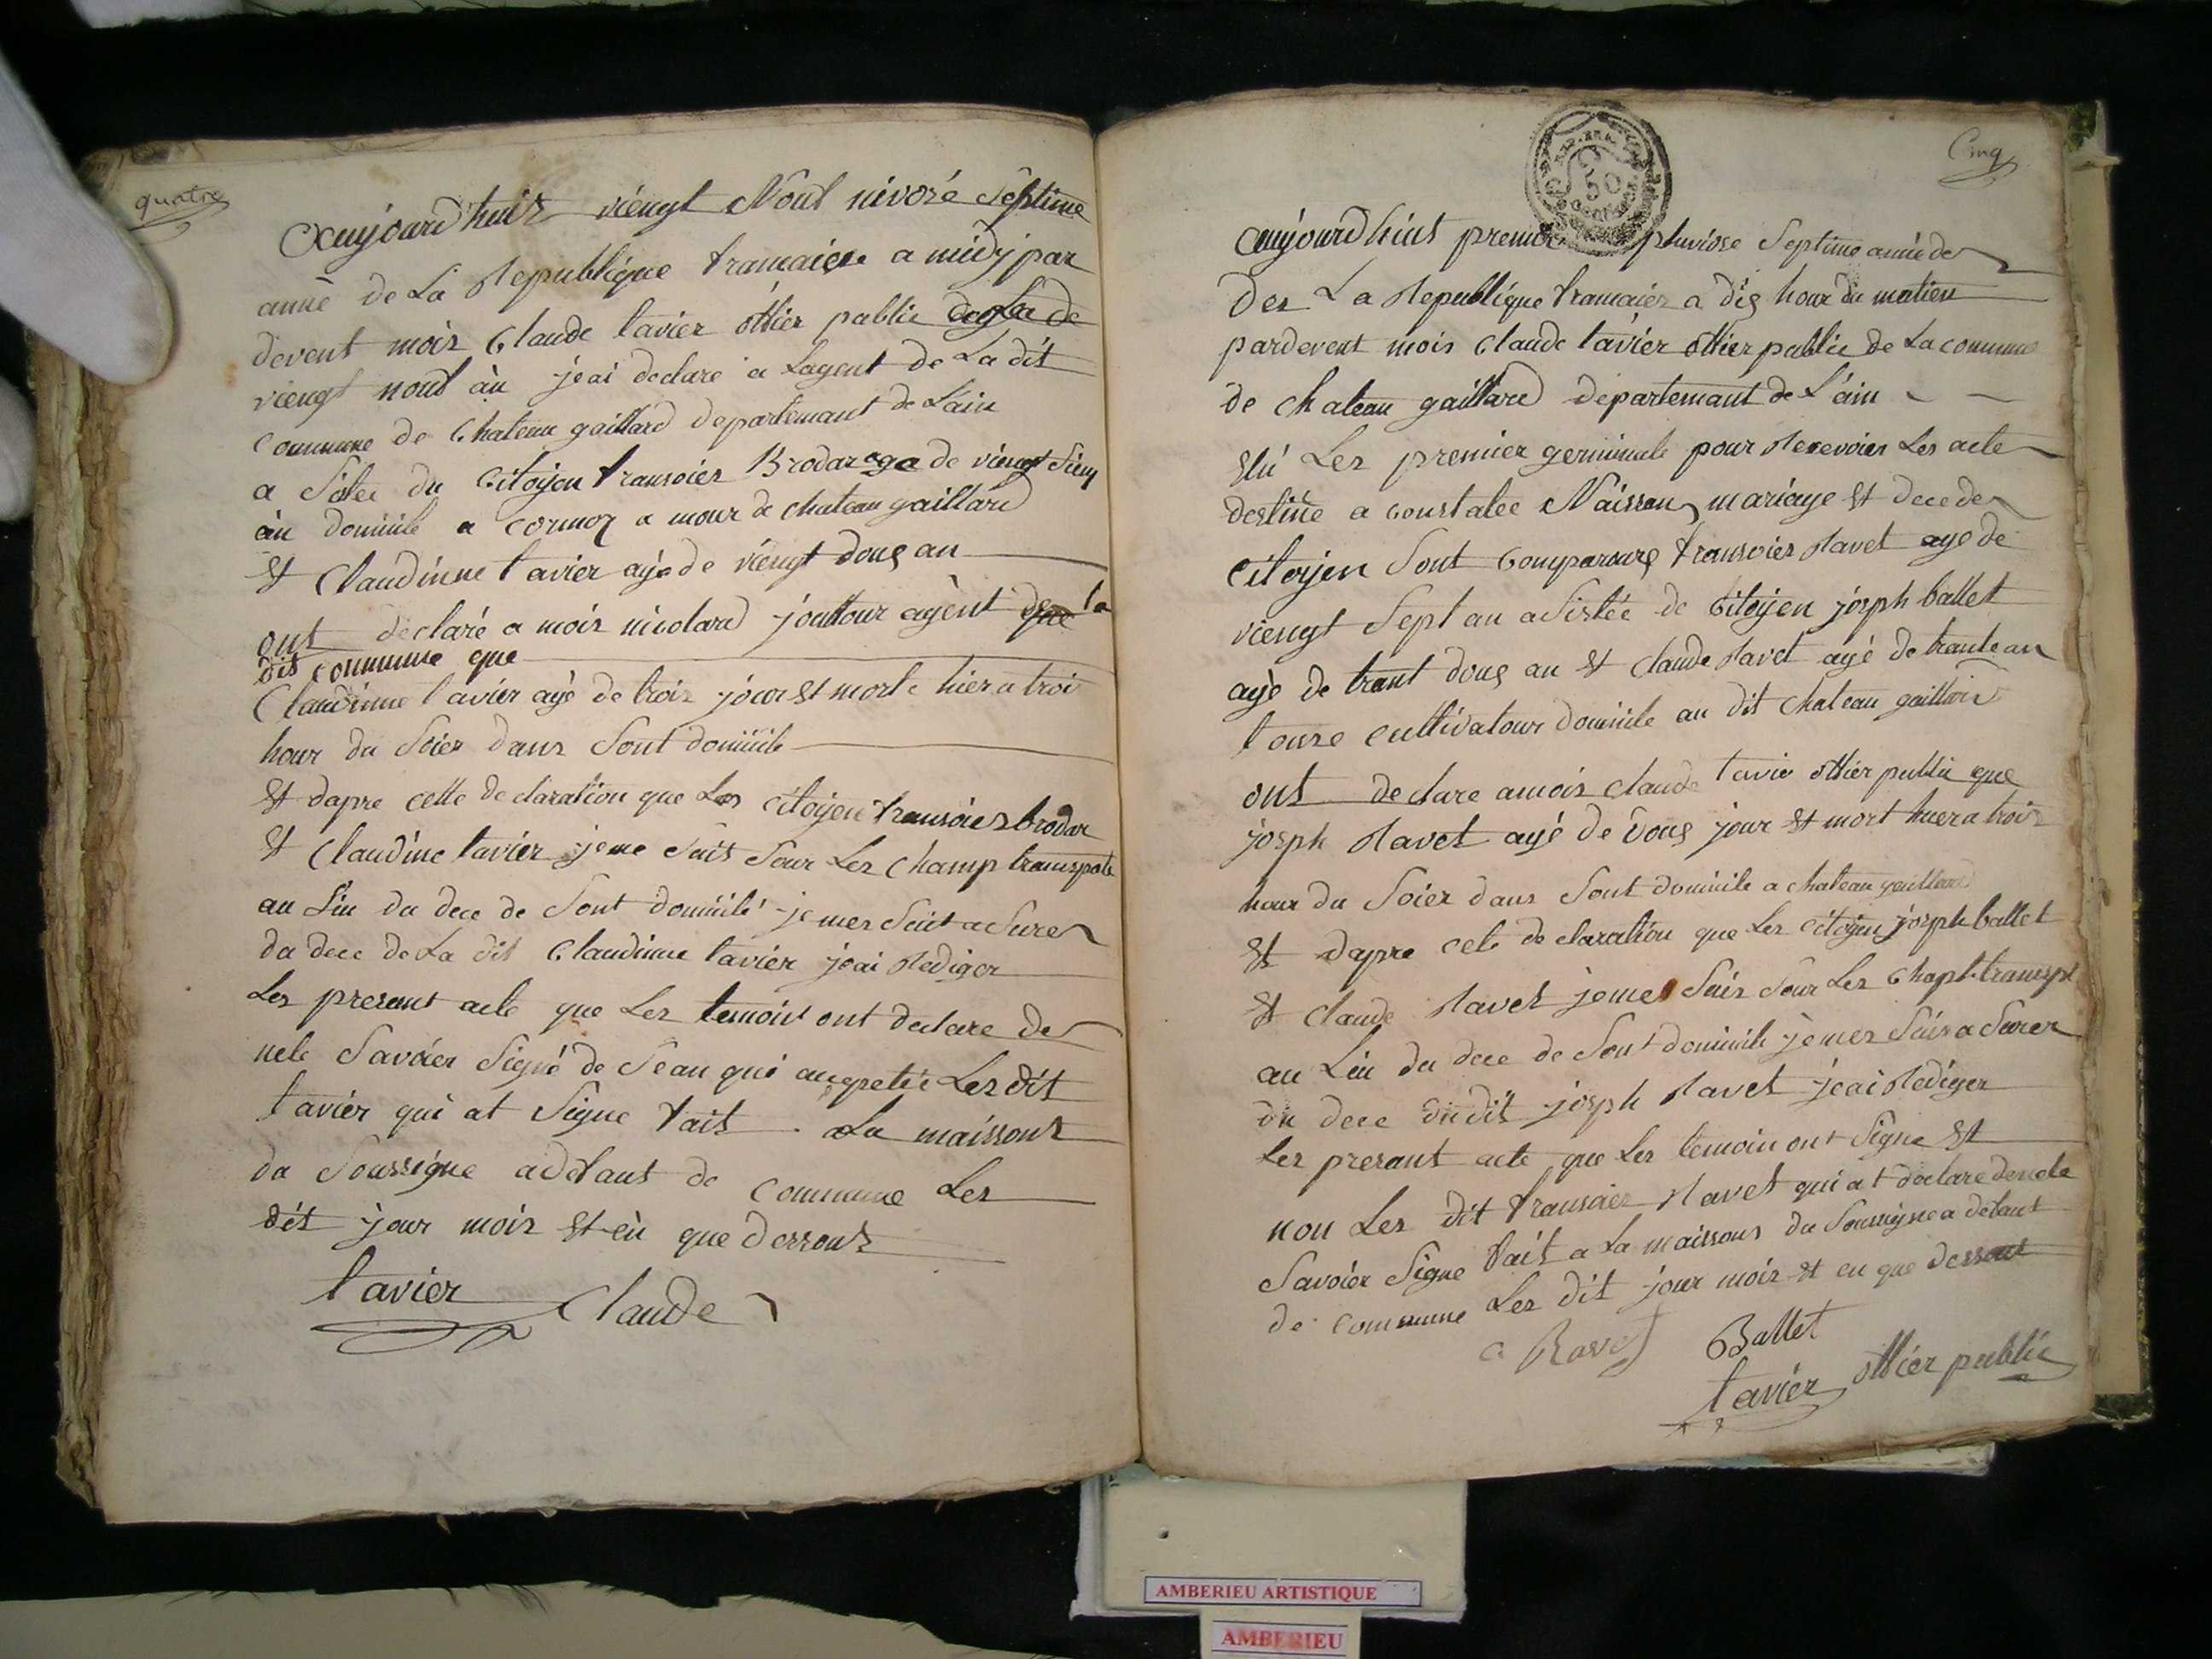 quatre
aujourdhuis viengt Nout nivoré Septime
anné de La Republique francaiçe a midy par
devent mois Claude tavier ottier public de La de
viengt nout an jéai declaré a Lagent de La dit
commune de Chateau gaillard departemant de Lain
a Sisteé du Citoyen fransoies Brodar age de viengt Sienq
an domicile a cormoz a mour de chateau gaillard
et Claudinne tavier ayé de viengt douç an
ont déclaré a mois nicolard jouttour agént que la
dit commune que
Claudinne tavier ayé de trois jour et morte hier a troi
hour du Soier dans Sont domicile
et dapre cette declaration que Les Citoyen fransoies brodar
et Claudine tavier jeme Suis Sour Les Champ transpote
au Liu du dece de Sont domicile jemes Suit a Sures
du dece de La dit Claudinne tavier jéai Rediger
Les presant acte que Les temoins ont declare de
nele Savoier Signé de Sean qui aucpetée Les dit
tavier qui at Signe fait . La maissons
du Soussigne adefaut de commune Les
dit jour mois et en que dessous
tavier Claude
Cinq
50
aujourdhius premier pluviose Septime année de
Des La Republique francaies a diç hour du matien
pardevent mois Claude tavier ottier public de La commune
de chateau gaillard departemant de L'ain
elu Les premier germinale pour Resevoier Les acte
destinée a constatee Naissan, mariaye et decede
Citoyen Sont Comparourç fransoies Ravet aye de
viengt Sept an a Sistée de Citoyen josph ballet
ayé de trant douç an et Claude Ravet ayé de trante an
tousse cultivatour domicile au dit chateau gaillard
ont declare amois Claude tavie ottier public que
josph Ravet ayé de douç jour et mort huer a trois
hour du Soier dans Sont domicile a chateau gaillard
et dapre cete declaration que Les Citoyen josph ballet
et Claude Ravet jemes Suis Sour Les Chapt transpt
au Liu du dece de Sont domicile jemes Suis a Surer
du dece du dit josph Ravet jéai Rediger
Les presant acte que Les temoin ont Signe et
non Les dit fransoies Ravet qui at declare denele
Savoier Signe fait a La maissons du Soussigne a defaut
de commune Les dit jour mois et en que dessous
C Ravet Ballet
tavier ottier public
AMBERIEU ARTISTIQUE
AMBERIEU